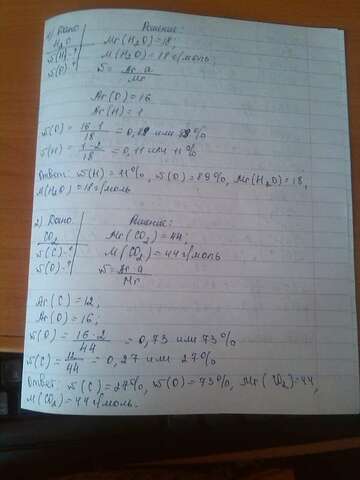 1) Дано: Решение:
H₂O Mr(H₂O)=18;
w(H)-? M(H₂O)=18 г/моль
w(O)-? w = Ar·a / Mr
Ar(O)=16
Ar(H)=1
w(O) = 16·1 / 18 = 0,89 или 89%
w(H) = 1·2 / 18 = 0,11 или 11%
Ответ: w(H)=11%, w(O)=89%, Mr(H₂O)=18,
M(H₂O)=18 г/моль
2) Дано: Решение:
CO₂ Mr(CO₂)=44;
w(C)-? M(CO₂)=44 г/моль
w(O)-? w = Ar·a / Mr
Ar(C)=12,
Ar(O)=16;
w(O) = 16·2 / 44 = 0,73 или 73%
w(C) = 12 / 44 = 0,27 или 27%
Ответ: w(C)=27%, w(O)=73%, Mr(CO₂)=44,
M(CO₂)=44 г/моль.